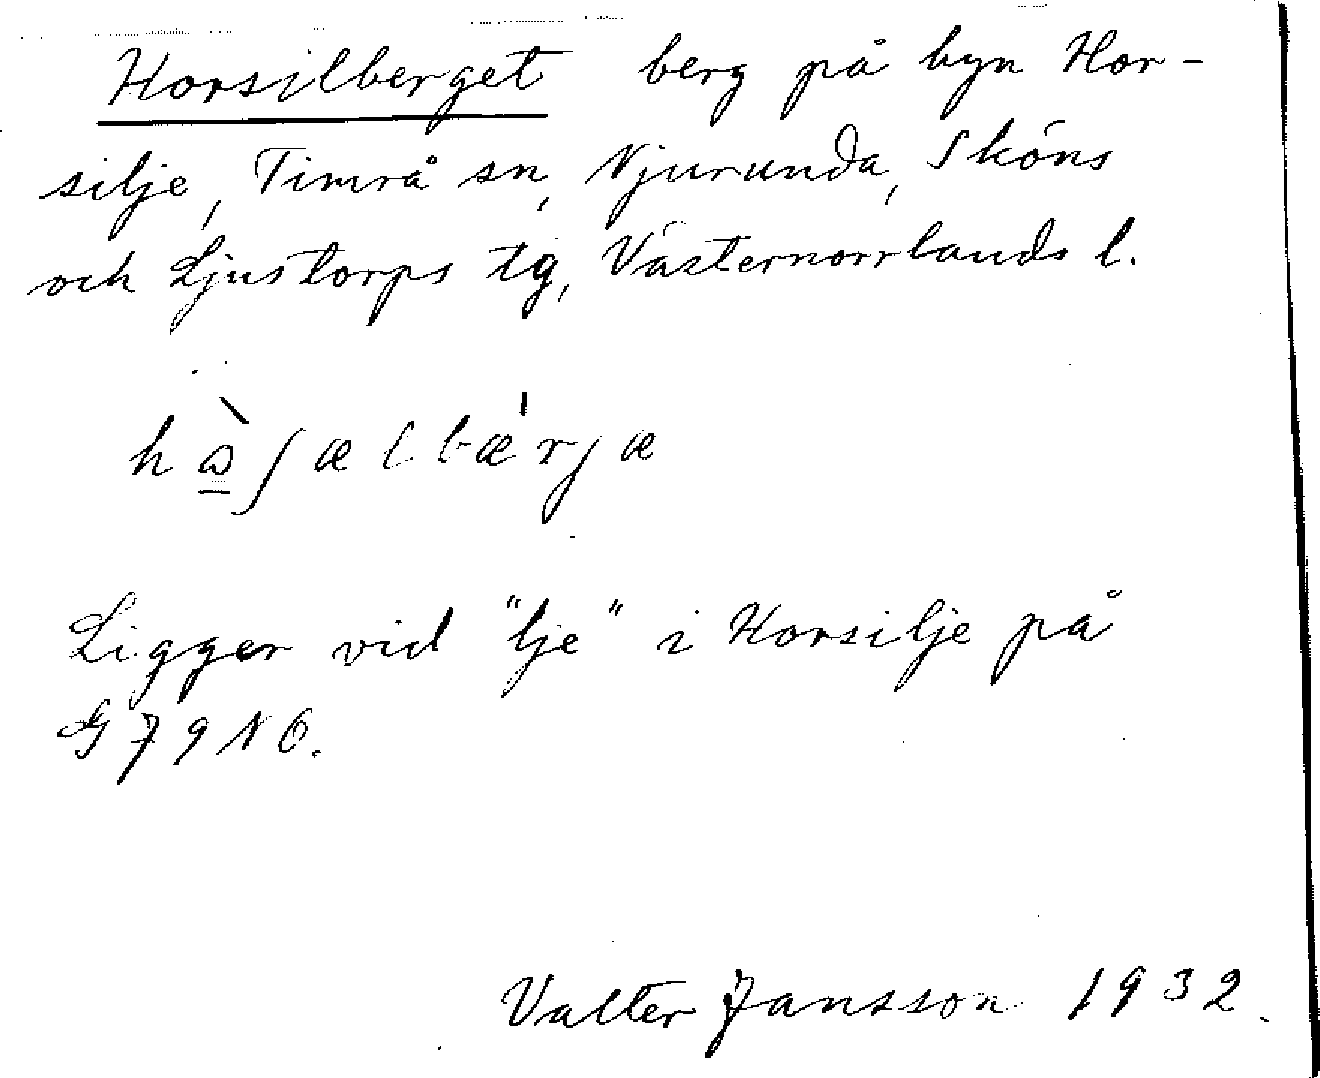 Horsilberget berg på byn Hor-
silje, Timrå sn, Njurunda, Sköns
och Ljustorps tg, Västernorrlands l.
Ligger vid "lje" i Horsilje på
G 7 9 N O.
Valter Jansson 1932.